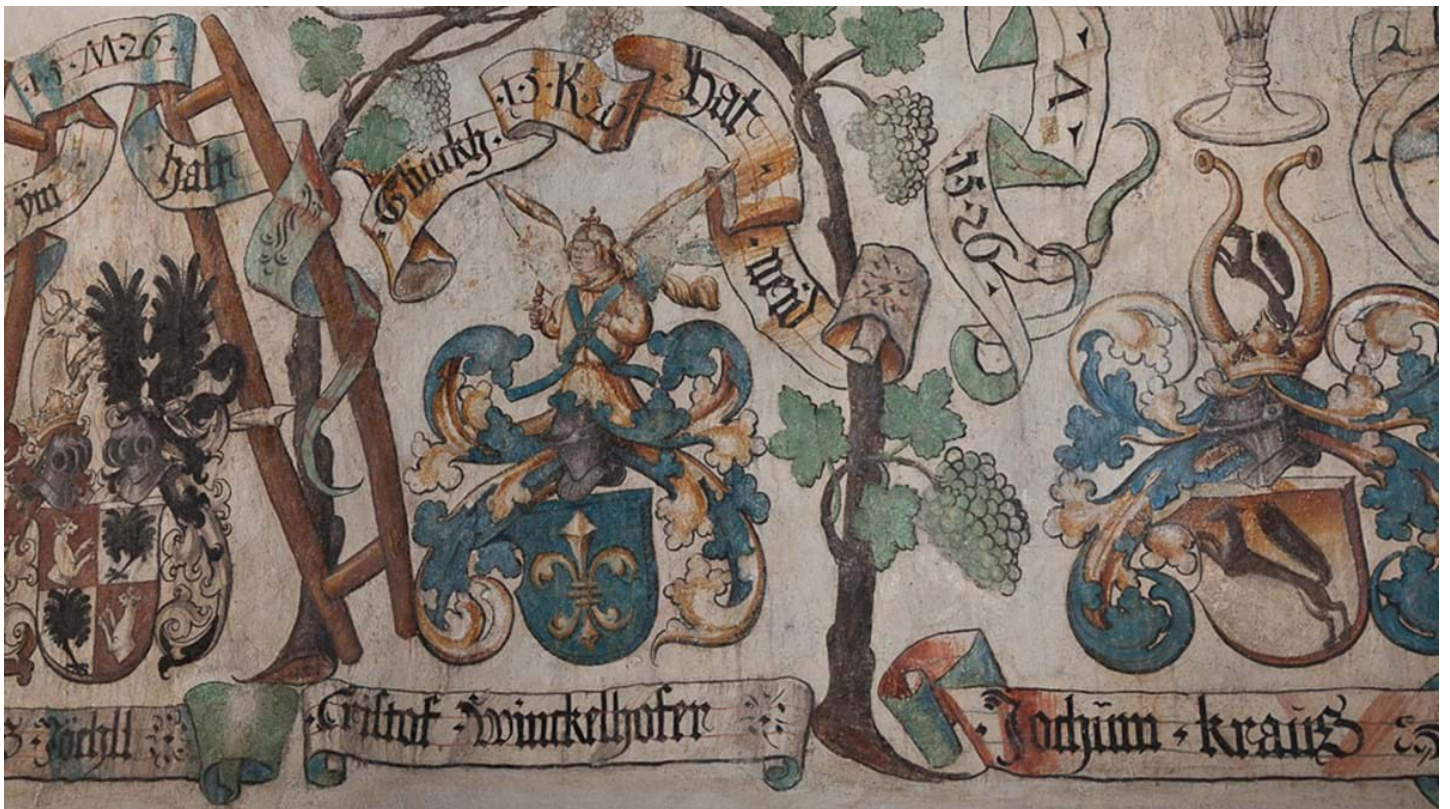 ·15·M·26·
ÿm
halt
Glückh·
·15·K·26
hat
neid
A
15·26·
Jöchll
Cristof · Winckelhofer
Jochüm · kraüs